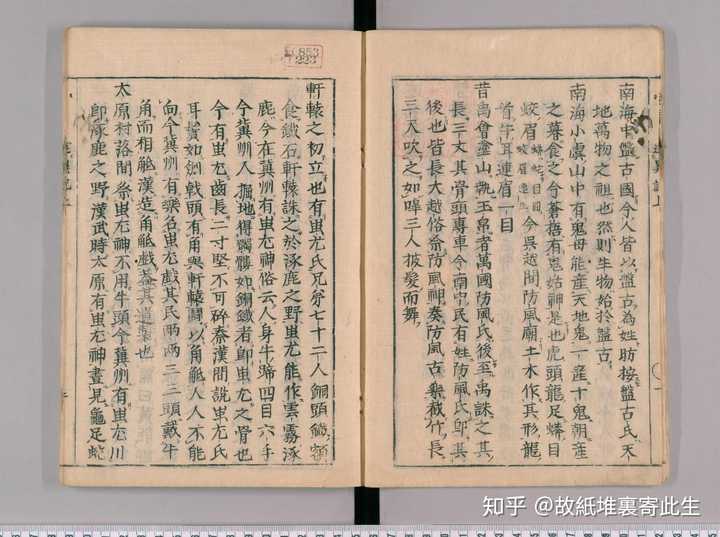 南海中盤古國今人皆以盤古為姓昉按盤古氏天
地萬物之祖也然則生物始於盤古
南海小虞山中有鬼母能産天地鬼一産十鬼朝産
之暮食之今蒼梧有鬼姑神是也虎頭龍足蟒目
蛟眉今吳越間防風廟土木作其形龍
首牛耳連眉一目
昔禹會塗山執玉帛者萬國防風氏後至禹誅之其
長三丈其骨頭專車今南中民有姓防風氏即其
後也皆長大越俗祭防風神奏防風古樂截竹長
三尺吹之如嘷三人披髮而舞
853
223
軒轅之初立也有蚩尤氏兄弟七十二人銅頭鐵額
食鐵石軒轅誅之於涿鹿之野蚩尤能作雲霧涿
鹿今在冀州有蚩尤神俗云人身牛蹄四目六手
今冀州人掘地得髑髏如銅鐵者即蚩尤之骨也
今有蚩尤齒長二寸堅不可碎秦漢間說蚩尤氏
耳鬢如劒戟頭有角與軒轅鬪以角觝人人不能
向今冀州有樂名蚩尤戲其民兩兩三三頭戴牛
角而相觝漢造角觝戲蓋其遺製也
太原村落間祭蚩尤神不用牛頭今冀州有蚩尤川
即涿鹿之野漢武時太原有蚩尤神晝見龜足蛇
知乎 @故紙堆裏寄此生